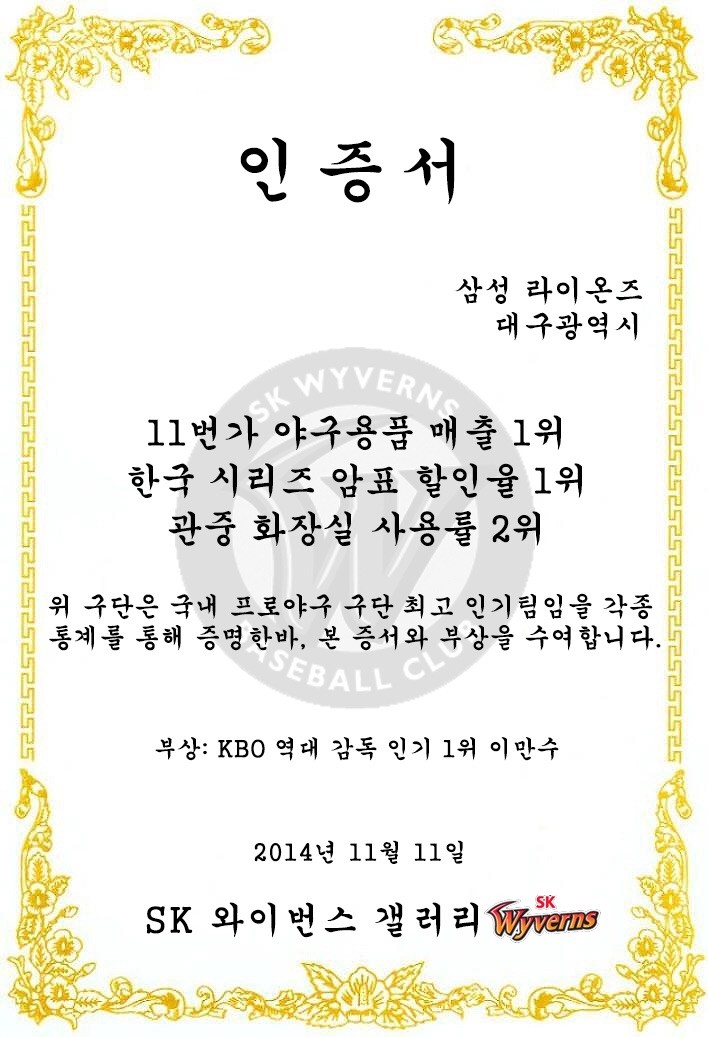 인증서
삼성 라이온즈
대구광역시
SK WYVERNS
11번가 야구용품 매출 1위
한국 시리즈 암표 할인율 1위
관중 화장실 사용률 2위
위 구단은 국내 프로야구 구단 최고 인기팀임을 각종
통계를 통해 증명한바, 본 증서와 부상을 수여합니다.
BASEBALL CLUB
부상: KBO 역대 감독 인기 1위 이만수
2014년 11월 11일
SK 와이번스 갤러리 SK Wyverns